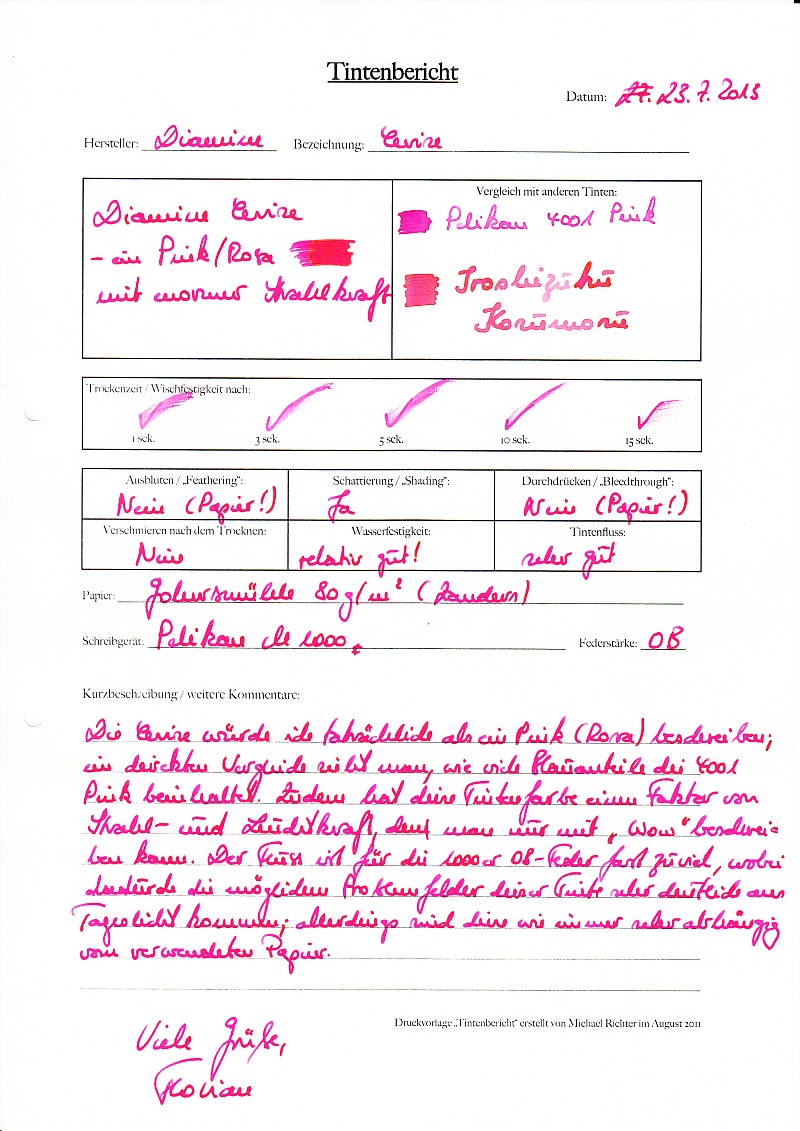 Tintenbericht
Datum: 27. 23.7.2013
Hersteller: Diamine Bezeichnung: Cerise
Diamine Cerise
- ein Pink/Rosa
mit enormer Strahlkraft
Vergleich mit anderen Tinten:
Pelikan 4001 Pink
Iroshizuku
Kosumosu
Trockenzeit / Wischfestigkeit nach:
1 sek. 3 sek. 5 sek. 10 sek. 15 sek.
Ausbluten / „Feathering": Schattierung / „Shading": Durchdrücken / „Bleedthrough":
Nein (Papier!) Ja Nein (Papier!)
Verschmieren nach dem Trocknen: Wasserfestigkeit: Tintenfluss:
Nein relativ gut! sehr gut
Papier: Gohrsmühle 80 g/m² (Zanders)
Schreibgerät: Pelikan M 1000 Federstärke: OB
Kurzbeschreibung / weitere Kommentare:
Die Cerise würde ich tatsächlich als ein Pink (Rosa) beschreiben;
im direkten Vergleich sieht man, wie viele Blauanteile die 4001
Pink beinhaltet. Zudem hat diese Tintenfarbe einen Faktor von
Strahl- und Leuchtkraft, den man nur mit „Wow" beschrei-
ben kann. Der Fluss ist für die 1000er OB-Feder fast zuviel, wobei
dadurch die möglichen Problemfelder dieser Tinte sehr deutlich ans
Tageslicht kommen; allerdings sind diese wie immer sehr abhängig
vom verwendeten Papier.
Druckvorlage „Tintenbericht" erstellt von Michael Richter im August 2011
Viele Grüße,
Florian